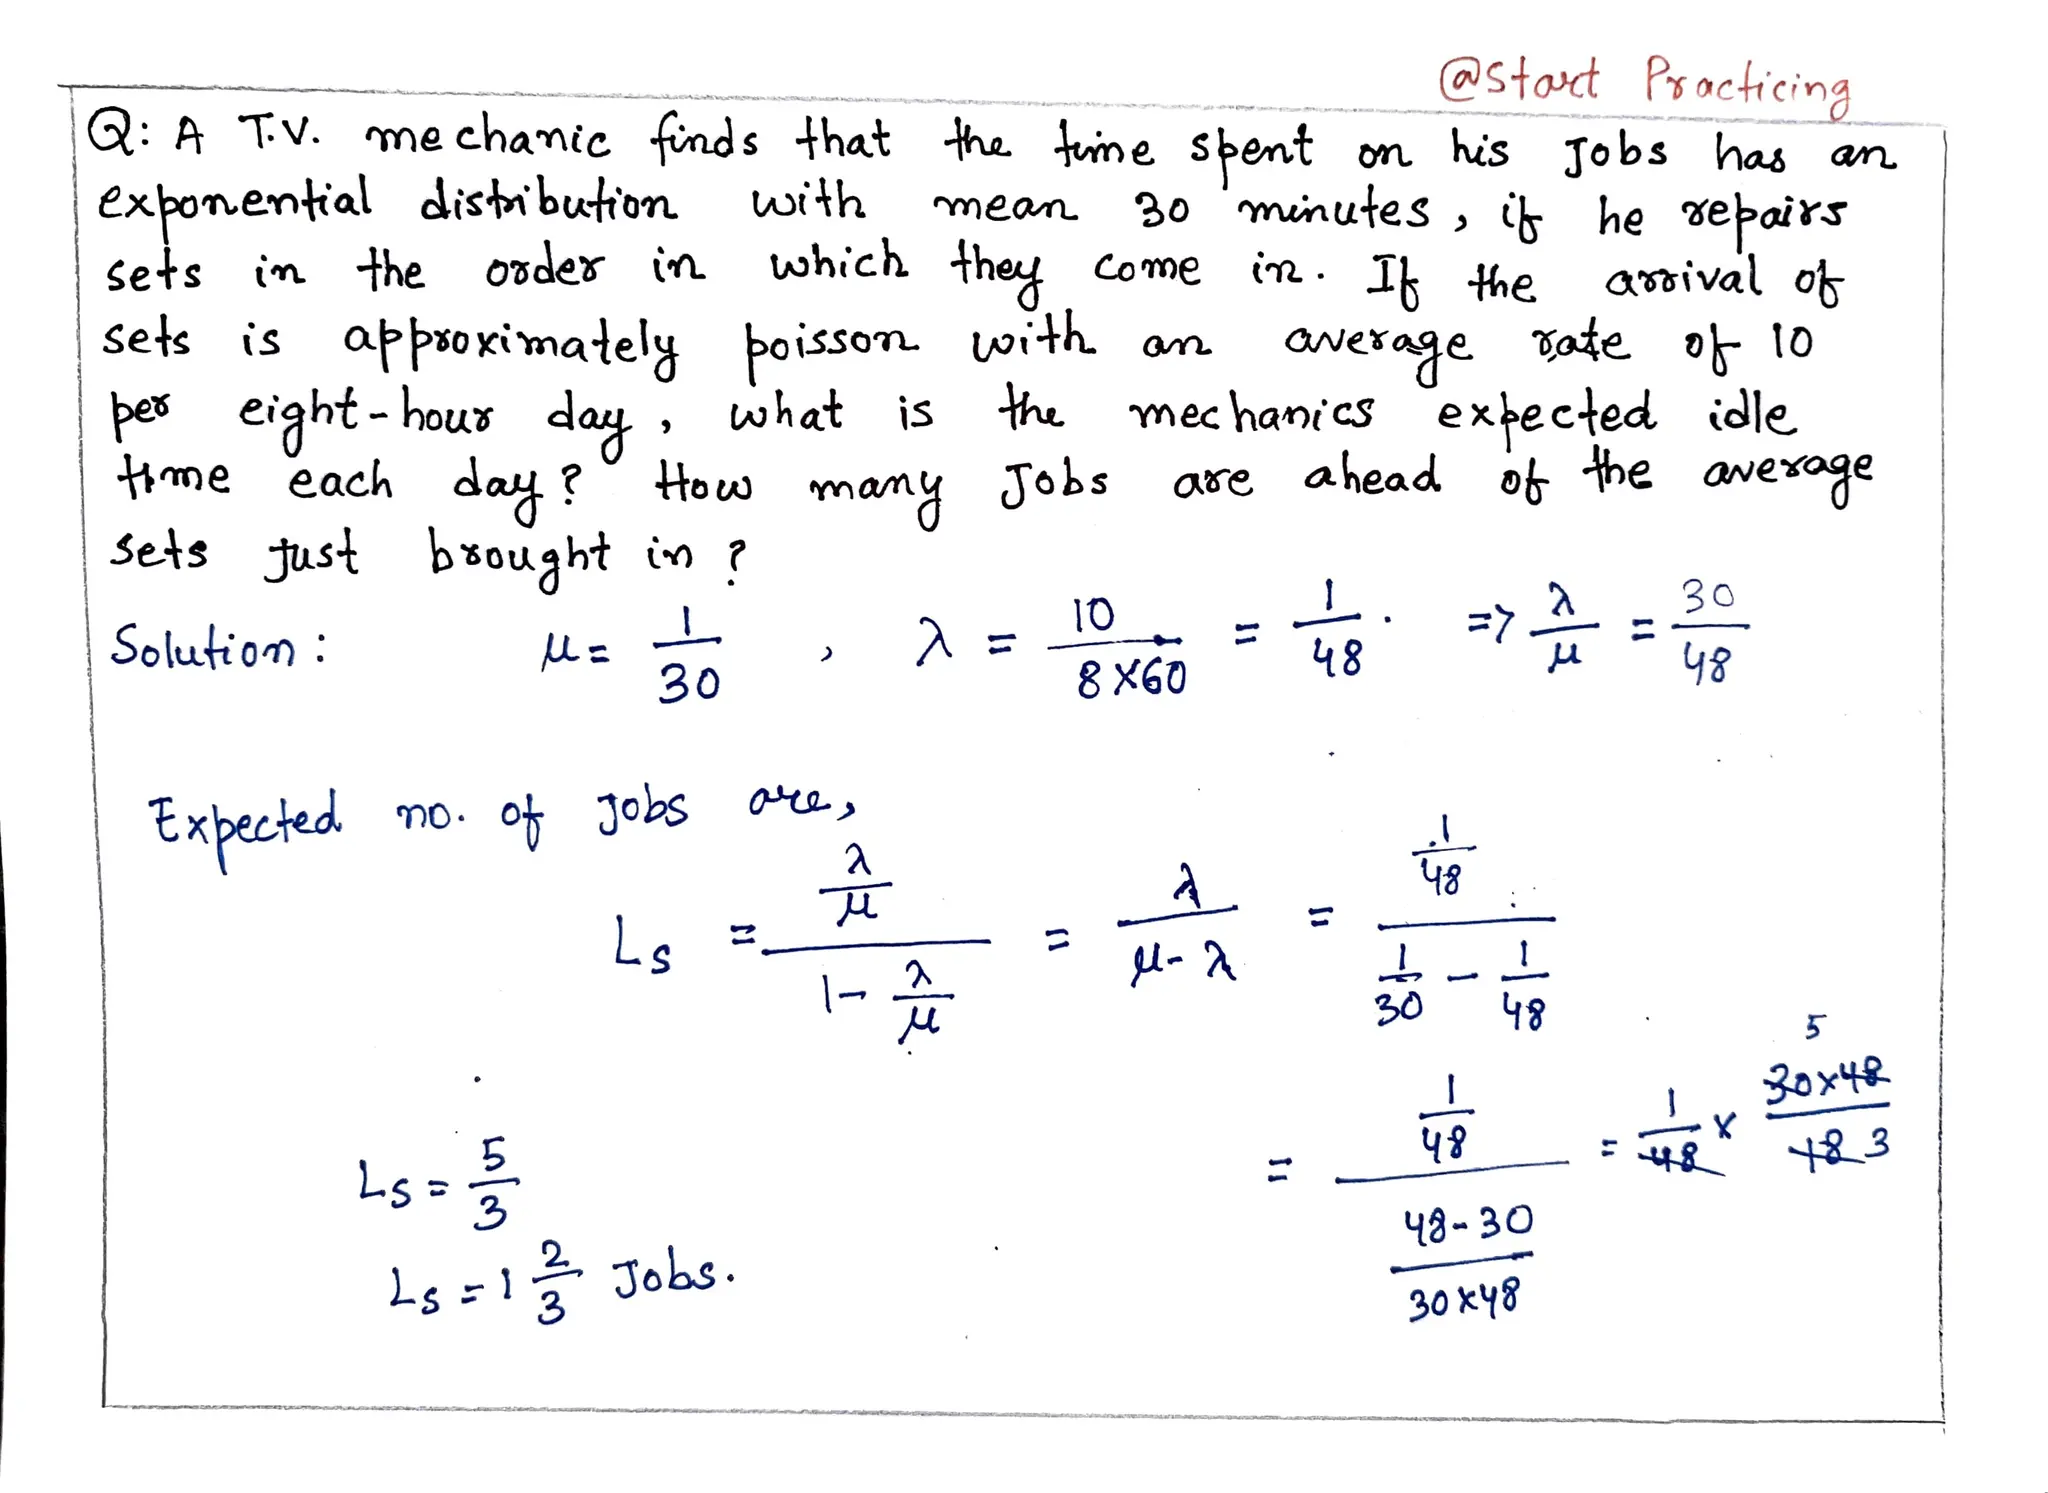 @Start Practicing
Q: A T.V. mechanic finds that the time spent on his Jobs has an
exponential distribution with mean 30 minutes, if he repairs
sets in the order in which they come in. If the arrival of
sets is approximately poisson with an average rate of 10
per eight-hour day, what is the mechanics expected idle
time each day? How many Jobs are ahead of the average
sets just brought in?
Solution: μ = 1/30 , λ = 10/(8×60) = 1/48. => λ/μ = 30/48
Expected no. of Jobs are,
Ls = (λ/μ)/(1-λ/μ) = λ/(μ-λ) = (1/48)/(1/30 - 1/48)
= (1/48)/((48-30)/(30×48)) = 1/48 × (30×48)/18 5 3
Ls = 5/3
Ls = 1 2/3 Jobs.